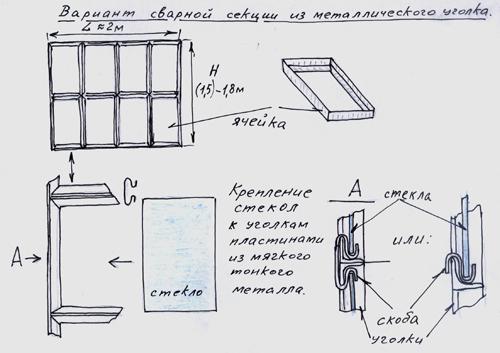 Вариант сварной секции из металлического уголка.
L ≈ 2м
H
(1,5)-1,8м
ячейка
Крепление
стекол
к уголкам
пластинами
из мягкого
тонкого
металла.
А
стекло
А
стекла
или:
скоба
уголки